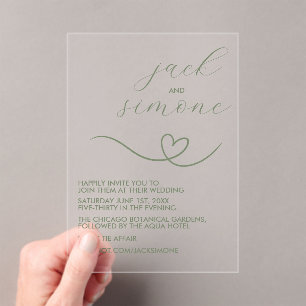 jack
AND
simone
HAPPILY INVITE YOU TO
JOIN THEM AT THEIR WEDDING
SATURDAY JUNE 1ST, 20XX
FIVE-THIRTY IN THE EVENING
THE CHICAGO BOTANICAL GARDENS,
FOLLOWED BY THE AQUA HOTEL
TIE AFFAIR
.COM/JACKSIMONE